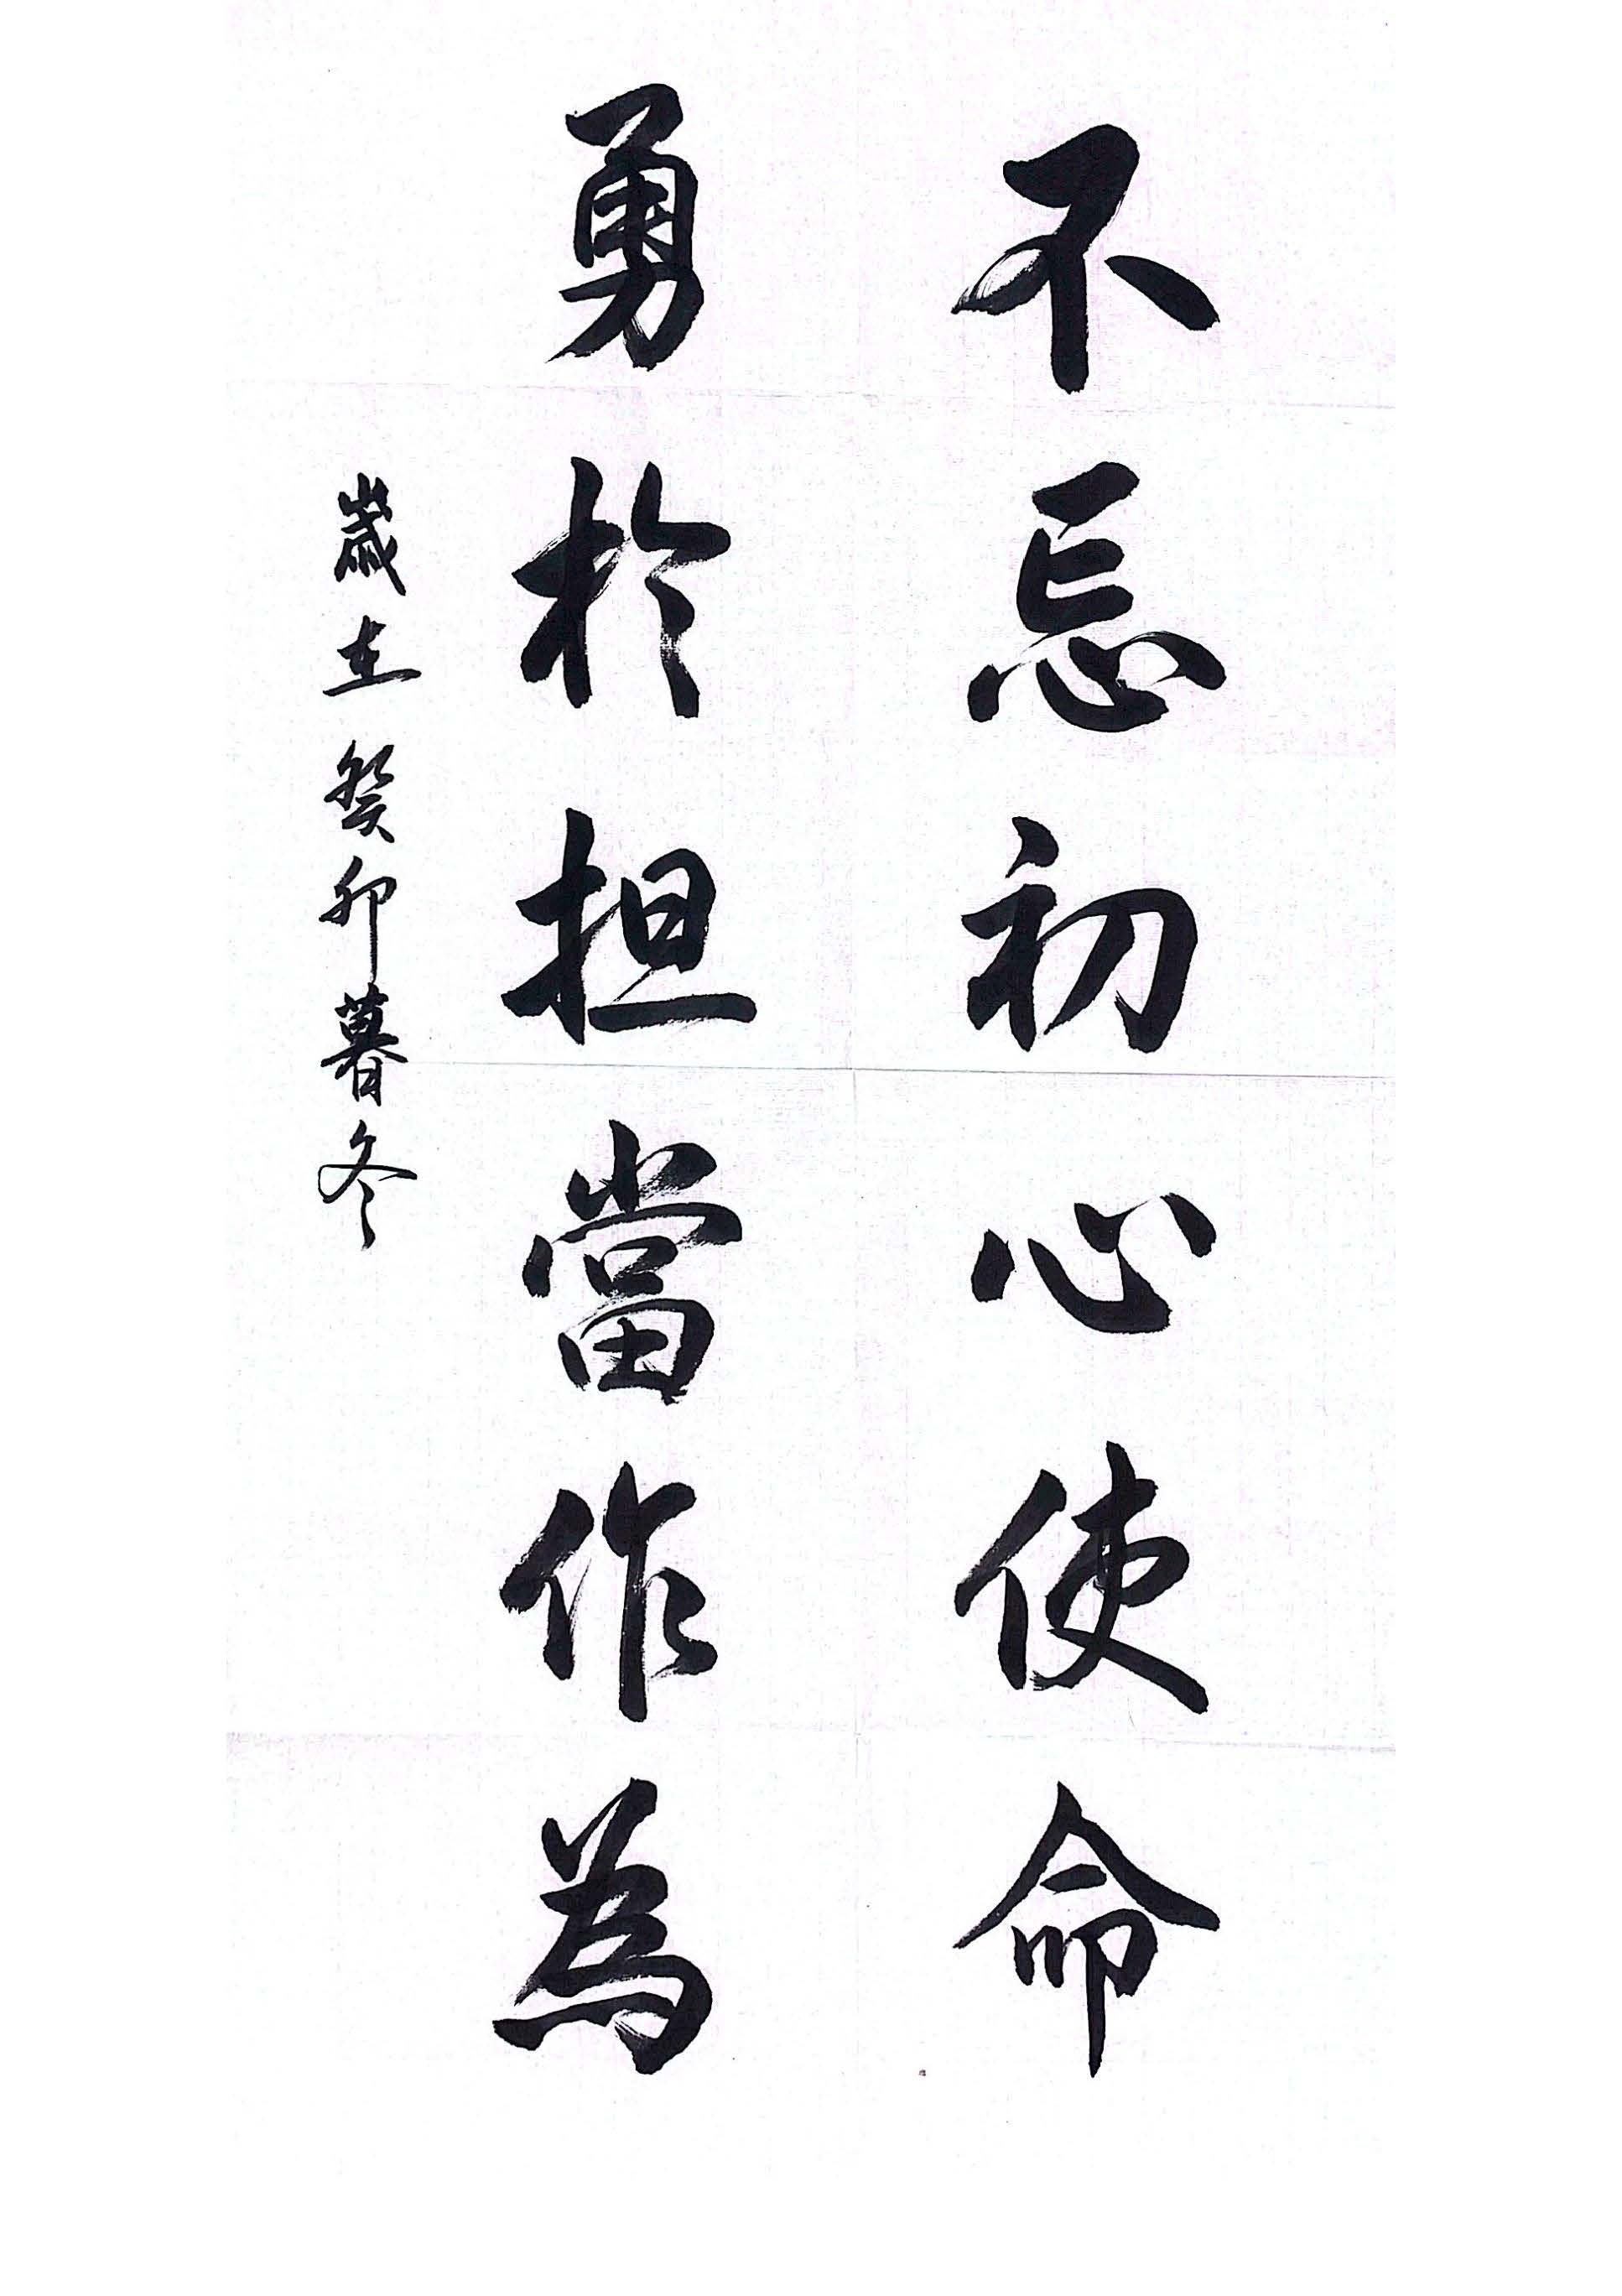 不忘初心使命
勇於担當作為
歲在癸卯暮冬